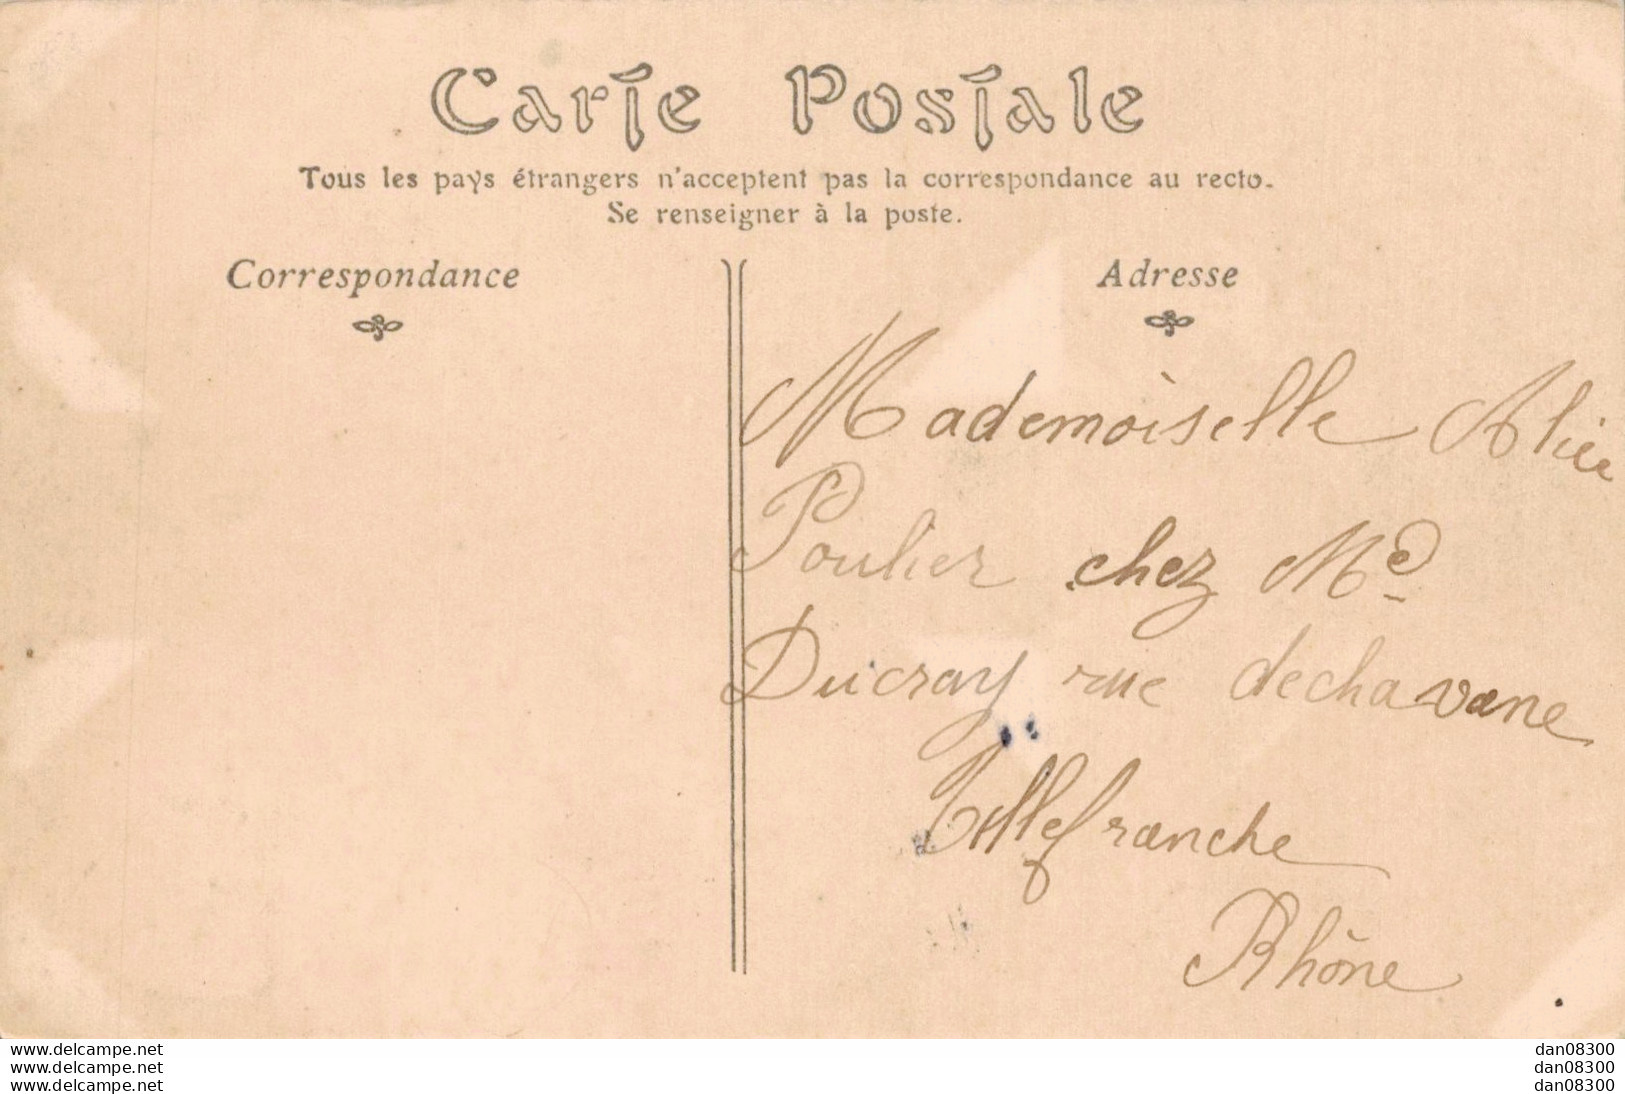 Carte Postale
Tous les pays étrangers n'acceptent pas la correspondance au recto.
Se renseigner à la poste.
Correspondance
Adresse
Mademoiselle Alice
Poulier chez Me
Ducray rue dechavane
Villefranche
Rhône
www.delcampe.net
www.delcampe.net
www.delcampe.net
dan08300
dan08300
dan08300